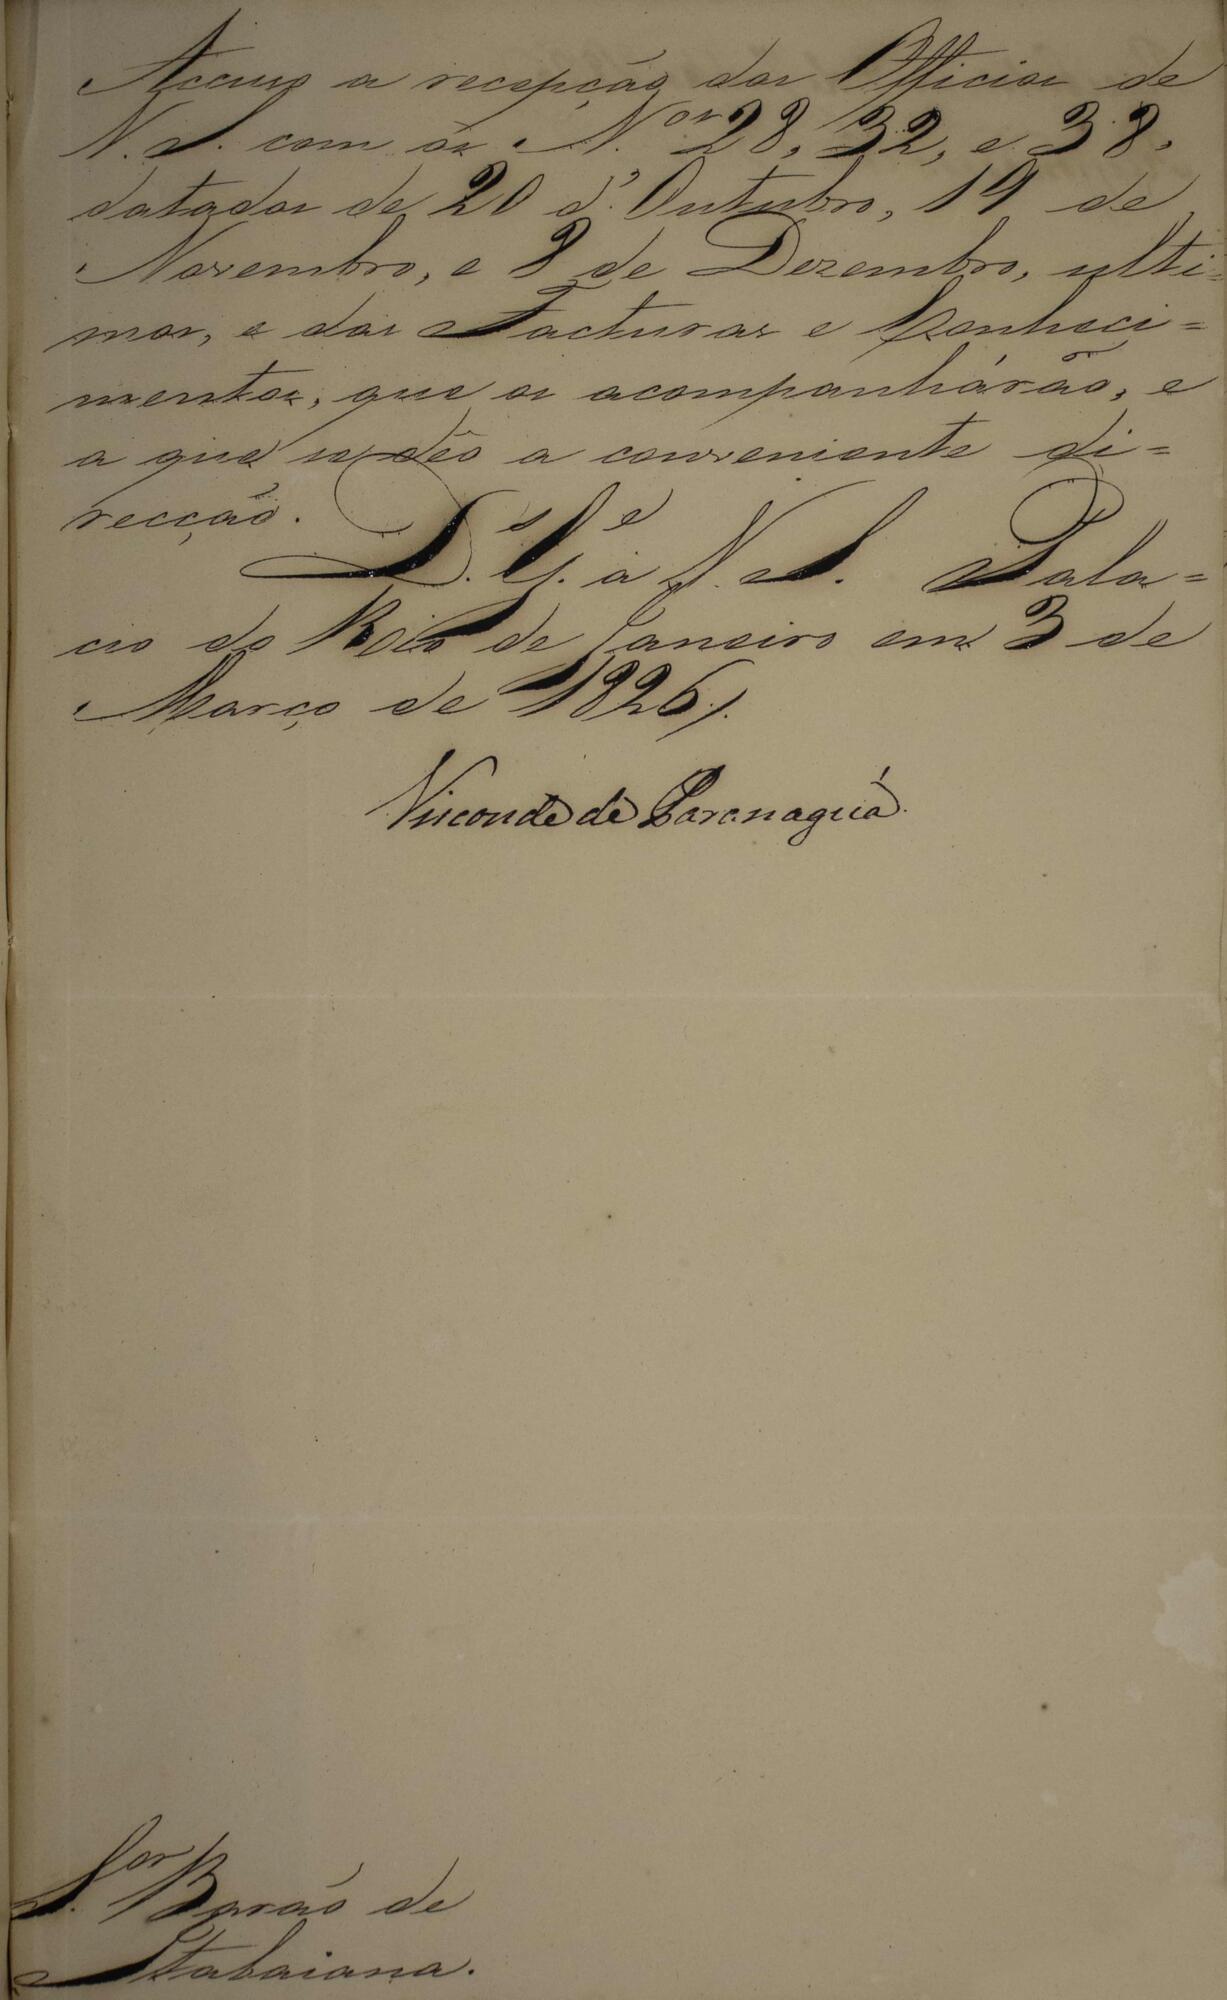 Accuso a recepção dos Officios de
V. S. com os N.os 28, 32, e 38,
datados de 20 d'Outubro, 19 de
Novembro, e 8 de Dezembro, ulti=
mos, e das Facturas e Conheci=
mentos, que os acompanhárão, e
a que se dêo a conveniente di=
recção.
D.s G.e a V. S. Pala=
cio do Rio de Janeiro em 3 de
Março de 1826/.
Visconde de Paranaguá.
S.or Barão de
Itabaiana.